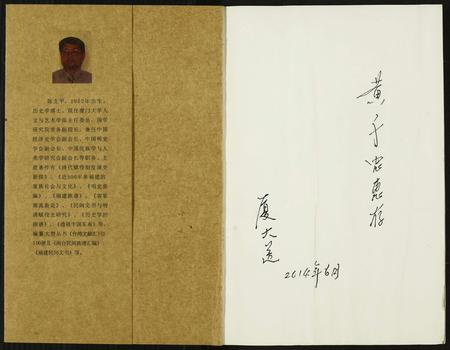 陈支平，1952年出生，
历史学博士。现任厦门大学人
文与艺术学部主任委员、国学
研究院常务副院长，兼任中国
经济史学会副会长、中国明史
学会副会长、中国民族学与人
类学研究会副会长等职务。主
要著作有《清代赋役制度演变
新探》、《近500年来福建的
家族社会与文化》、《明史新
编》、《福建族谱》、《客家
源流新论》、《民间文书与明
清赋役史研究》、《历史学的
困惑》、《透视中国东南》等，
编纂大型丛书《台湾文献汇刊》
100册及《闽台民间族谱汇编》
《福建民间文书》等。
黄子宏惠存
厦大送
2014年6月